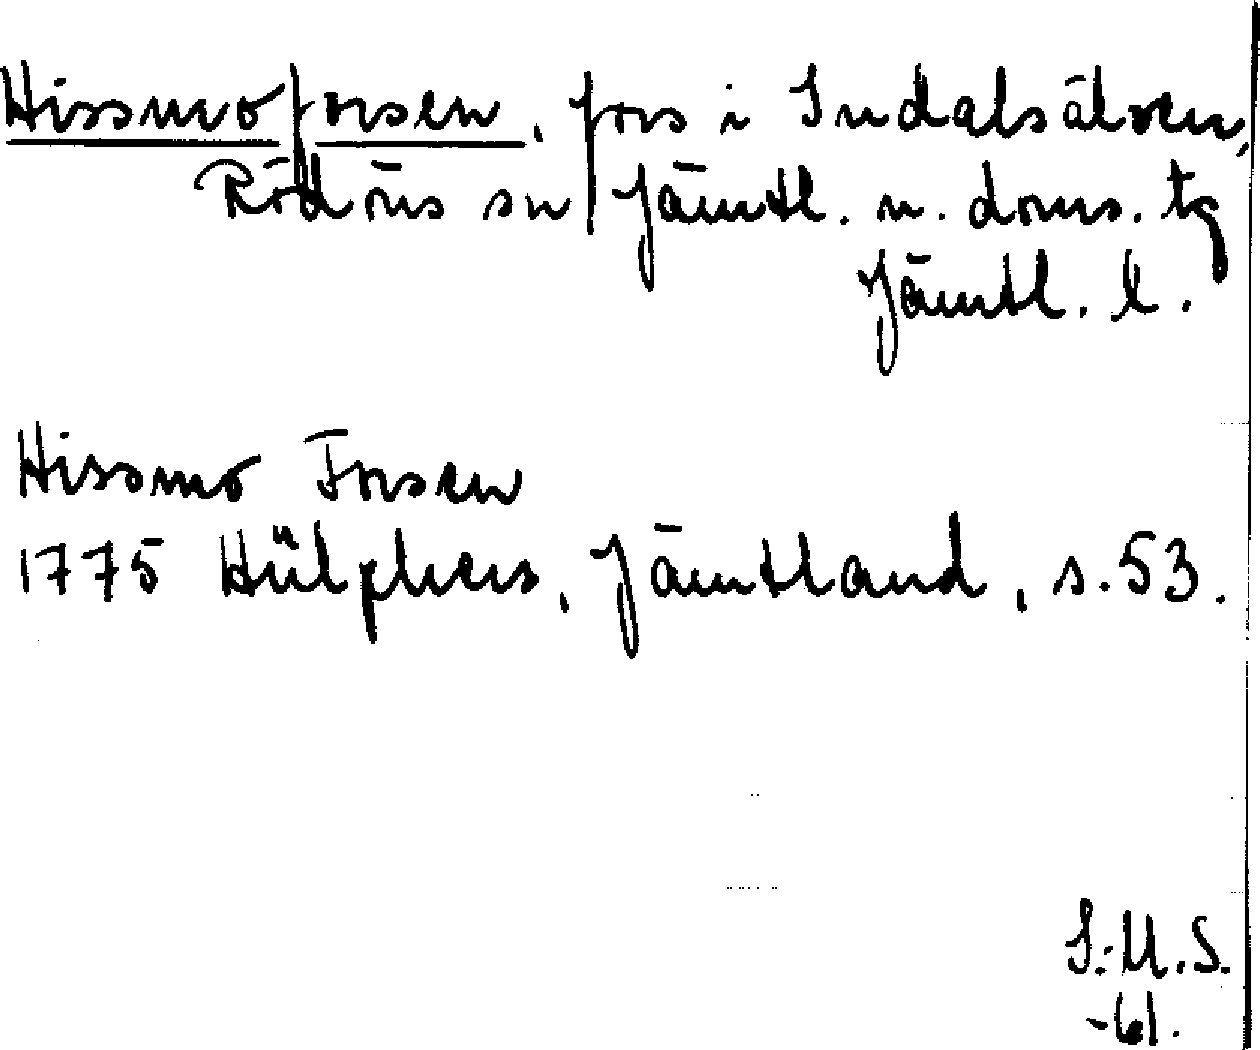 Hissmoforsen, fors i Indalsälven,
Rödöns sn Jämtl. n. doms. tg
Jämtl. l.
Hissmo Forsen
1775 Hülphers, Jämtland, s. 53.
S.-U.S.
-61.